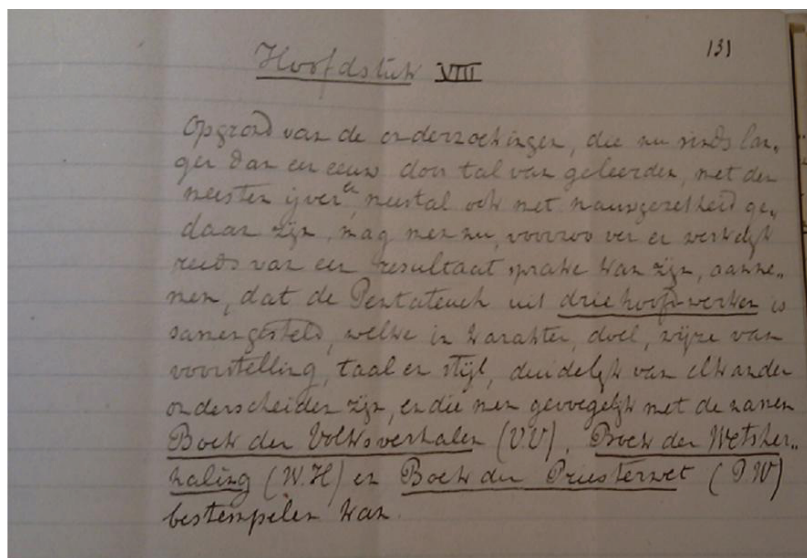 131
Hoofdstuk VIII
Op grond van de onderzoekingen, die nu sinds lan„
ger dan een eeuw door tal van geleerden, met den
meesten ijver en, meestal ook met nauwgezetheid ge„
daan zijn, mag men nu, voorzoo ver er werkelijk
reeds van een resultaat sprake kan zijn, aanne„
men, dat de Pentateuch uit drie hoofdwerken is
samengesteld, welke in karakter, doel, wijze van
voorstelling, taal en stijl, duidelijk van elkander
onderscheiden zijn, en die men gevoegelijk met de namen
Boek der Volksverhalen (VV), Boek der Wetsher„
haling (W.H) en Boek der Priesterwet (P.W)
bestempelen kan.